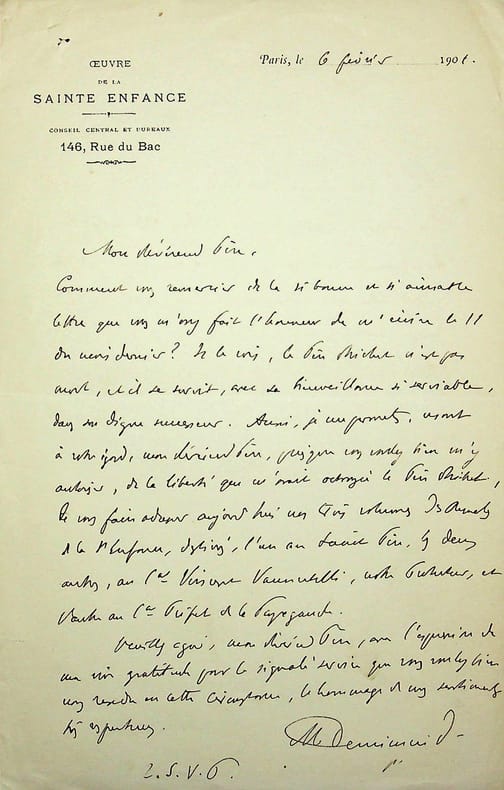 ŒUVRE
DE LA
SAINTE ENFANCE
CONSEIL CENTRAL ET BUREAUX
146, Rue du Bac
Paris, le 6 février 1901.
Mon Révérend Père,
Comment vous remercier de la si bonne et si aimable
lettre que vous m'avez fait l'honneur de m'écrire le 11
du mois dernier? Je le vois, le Père n'est pas
mort, et il se survit, avec sa bienveillance si serviable,
dans son digne successeur. Aussi, je me permets, usant
à votre égard, mon Révérend Père, puisque vous voulez bien m'y
autoriser, de la liberté que m'avait octroyée le Père
de vous faire adresser aujourd'hui nos trois volumes des Annales
de la Ste Enfance, destinés, l'un au Saint Père, les deux
autres, au Cal Vincent Vannutelli, notre Protecteur, et
l'autre au Cal Préfet de la Propagande.
Veuillez agréer, mon Révérend Père, avec l'expression de
ma vive gratitude pour le signalé service que vous voulez bien
nous rendre en cette circonstance, le hommage de mes sentiments
très respectueux.